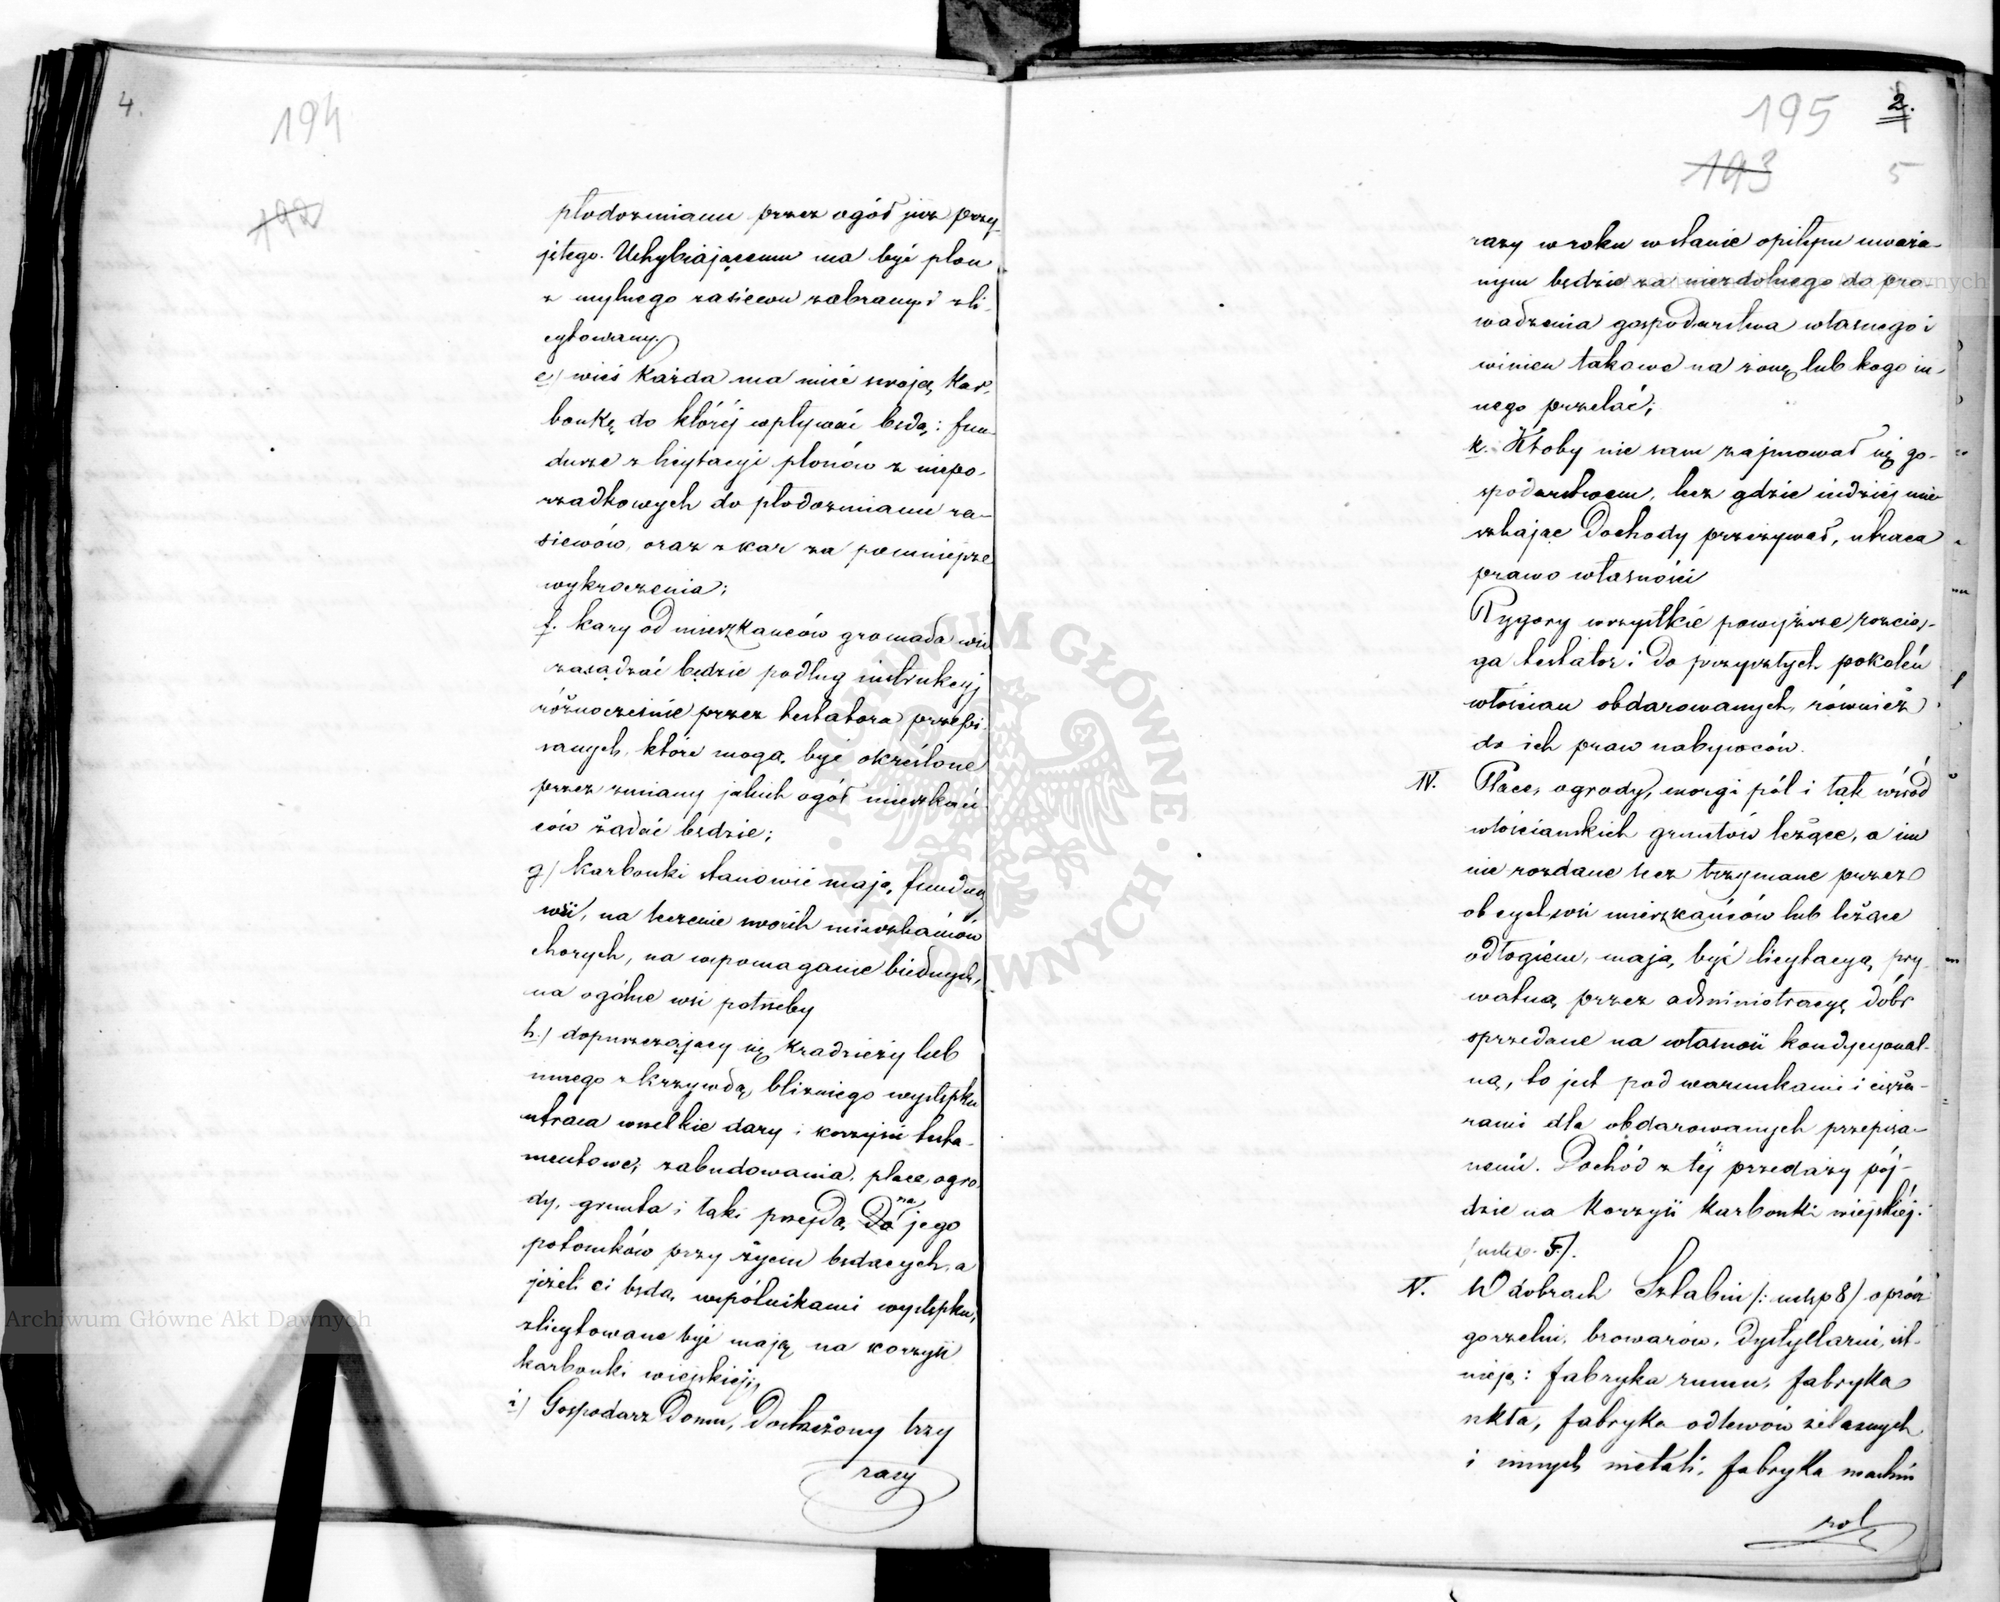 4.
194
192
płodozmianu przez ogół już przy-
jętego. Uchybiającemu ma być plon
z mylnego zasiewu zabrany i zli-
cytowany.
e) wieś każda ma mieć swoją kar-
bonkę do któréj wpływać będą: fun-
dusze z licytacyi plonów z niepo-
rządkowych do płodozmianu za-
siewów, oraz z kar za pomniejsze
wykroczenia;
f. kary od mieszkańców gromada wsi
zasądzać będzie podług instrukcyj
różnocześnie przez testatora przepi-
sanych, które mogą być określone
przez zmiany jakich ogół mieszkań-
ców żądać będzie;
g) karbonki stanowić mają fundusz
wsi, na leczenie swoich mieszkańców
chorych, na wspomaganie biednych,
na ogólne wsi potrzeby
h.) dopuszczający się kradzieży lub
innego z krzywdą bliźniego występku
utraca wszelkie dary i korzyści testa-
mentowe; zabudowania, place, ogro-
dy, grunta i łąki przejdą do na jego
potomków przy życiu będących, a
jeżeli ci będą wspólnikami występku,
zlicytowane być mają na korzyść
karbonki wiejskiéj;
i) Gospodarz Domu, Dostrzeżony trzy
razy
195
2.
193
5
razy w roku w stanie opiłym uważa-
nym będzie za niezdolnego do pro-
wadzenia gospodarstwa własnego i
winien takowe na żonę lub kogo in-
nego przelać;
k. Ktoby nie sam zajmował się go-
spodarstwem, lecz gdzie indziéj mie-
szkając Dochody przeżywał, utraca
prawo własności
Rygory wszystkie powyższe rozcią-
ga testator i do przyszłych pokoleń
włościan obdarowanych, również
do ich praw nabywców.
IV. Place, ogrody, morgi pól i łąk wśród
włościańskich gruntów leżące, a im
nie rozdane lecz trzymane przez
obcych wsi mieszkańców lub leżące
odłogiem, mają być licytacyą pry-
watną przez administracyę dóbr
sprzedane na własność kondycyonal-
ną, to jest pod warunkami i cięża-
rami dla obdarowanych przepisa-
nemi. Dochód z téj przedaży pój-
dzie na korzyść karbonki wiejskiéj.
/ustęp. 5/.
V. W dobrach Sztabin /: ustęp 8/ oprócz
gorzelni, browarów, Dystyllarni, ist-
nieją: fabryka rumu, fabryka
szkła, fabryka odlewów żelaznych
i innych metali, fabryka machin
rol
ARCHIWUM GŁÓWNE AKT DAWNYCH
Archiwum Główne Akt Dawnych
Archiwum Główne Akt Dawnych